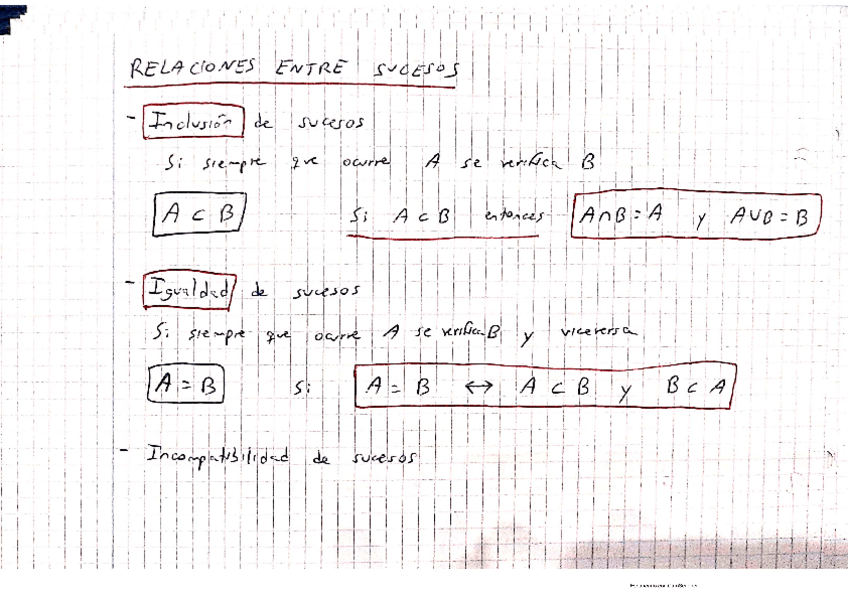 RELACIONES ENTRE SUCESOS
- Inclusión de sucesos
Si siempre que ocurre A se verifica B
A ⊂ B Si A ⊂ B entonces A∩B = A y A∪B = B
- Igualdad de sucesos
Si siempre que ocurre A se verifica B y viceversa
A = B Si A = B ↔ A ⊂ B y B ⊂ A
- Incompatibilidad de sucesos